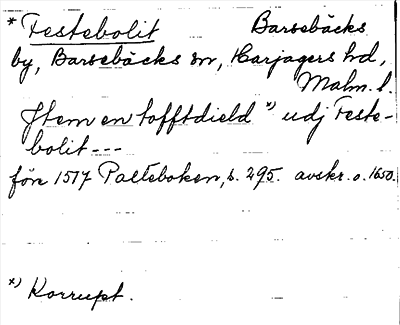 * Festebolit Barsebäcks
by, Barsebäcks sn, Harjagers hd,
Malm. l.
Jtem en tofftdield *) udj Feste-
bolit ---
före 1517 Palteboken, s. 295. avskr. o. 1650.
*) Korrupt.